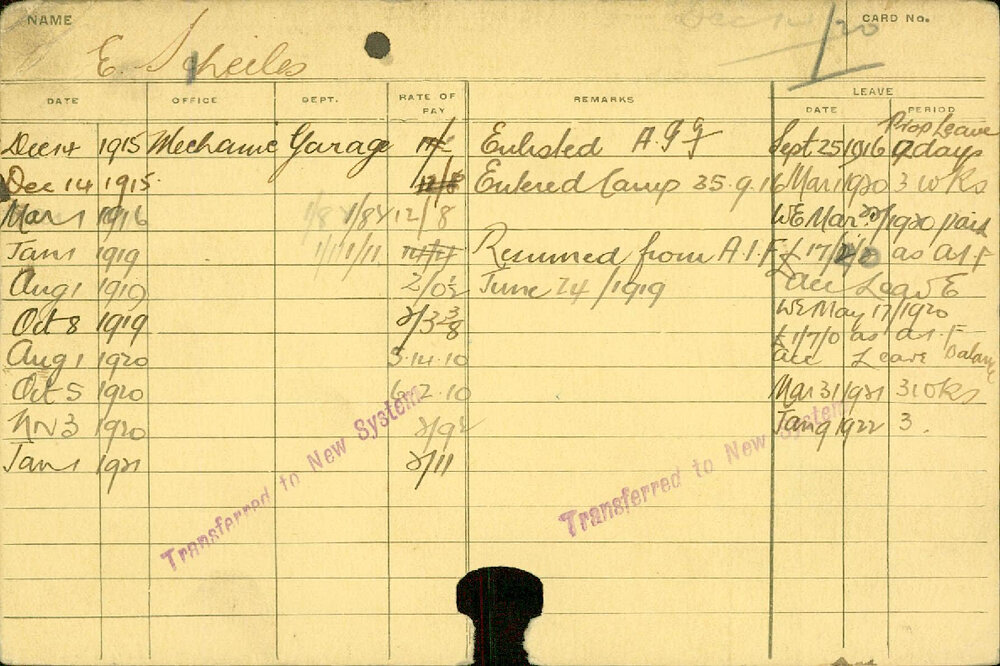 NAME
CARD No.
E. Scheiles
DATE OFFICE DEPT. RATE OF PAY REMARKS LEAVE DATE PERIOD
Prop Leave
Dec 14 1915 Mechanic Garage Enlisted Sept 25 1916 9 days
Dec 14 1915 12/8 Entered Camp 25.9.16 Mar 1 1920 3 wks
Mar 1 1916 1/8 1/8 12/8 WE Mar 1920 paid
Jan 1 1919 1/11 1/11 Resumed from A.I.F. £17/ as A.I.F
Aug 1 1919 2/0½ June 24/1919 acc Leave
Oct 8 1919 2/3 3/8 WE May 17/1920
£1/7/0 as A.I.F
Aug 1 1920 5.14.10 acc Leave balance
Oct 5 1920 6.2.10 Mar 31 1921 3 wks
Nov 3 1920 2/9½ Jan 9 1922 3.
Jan 1 1921 2/11
Transferred to New System
Transferred to New System